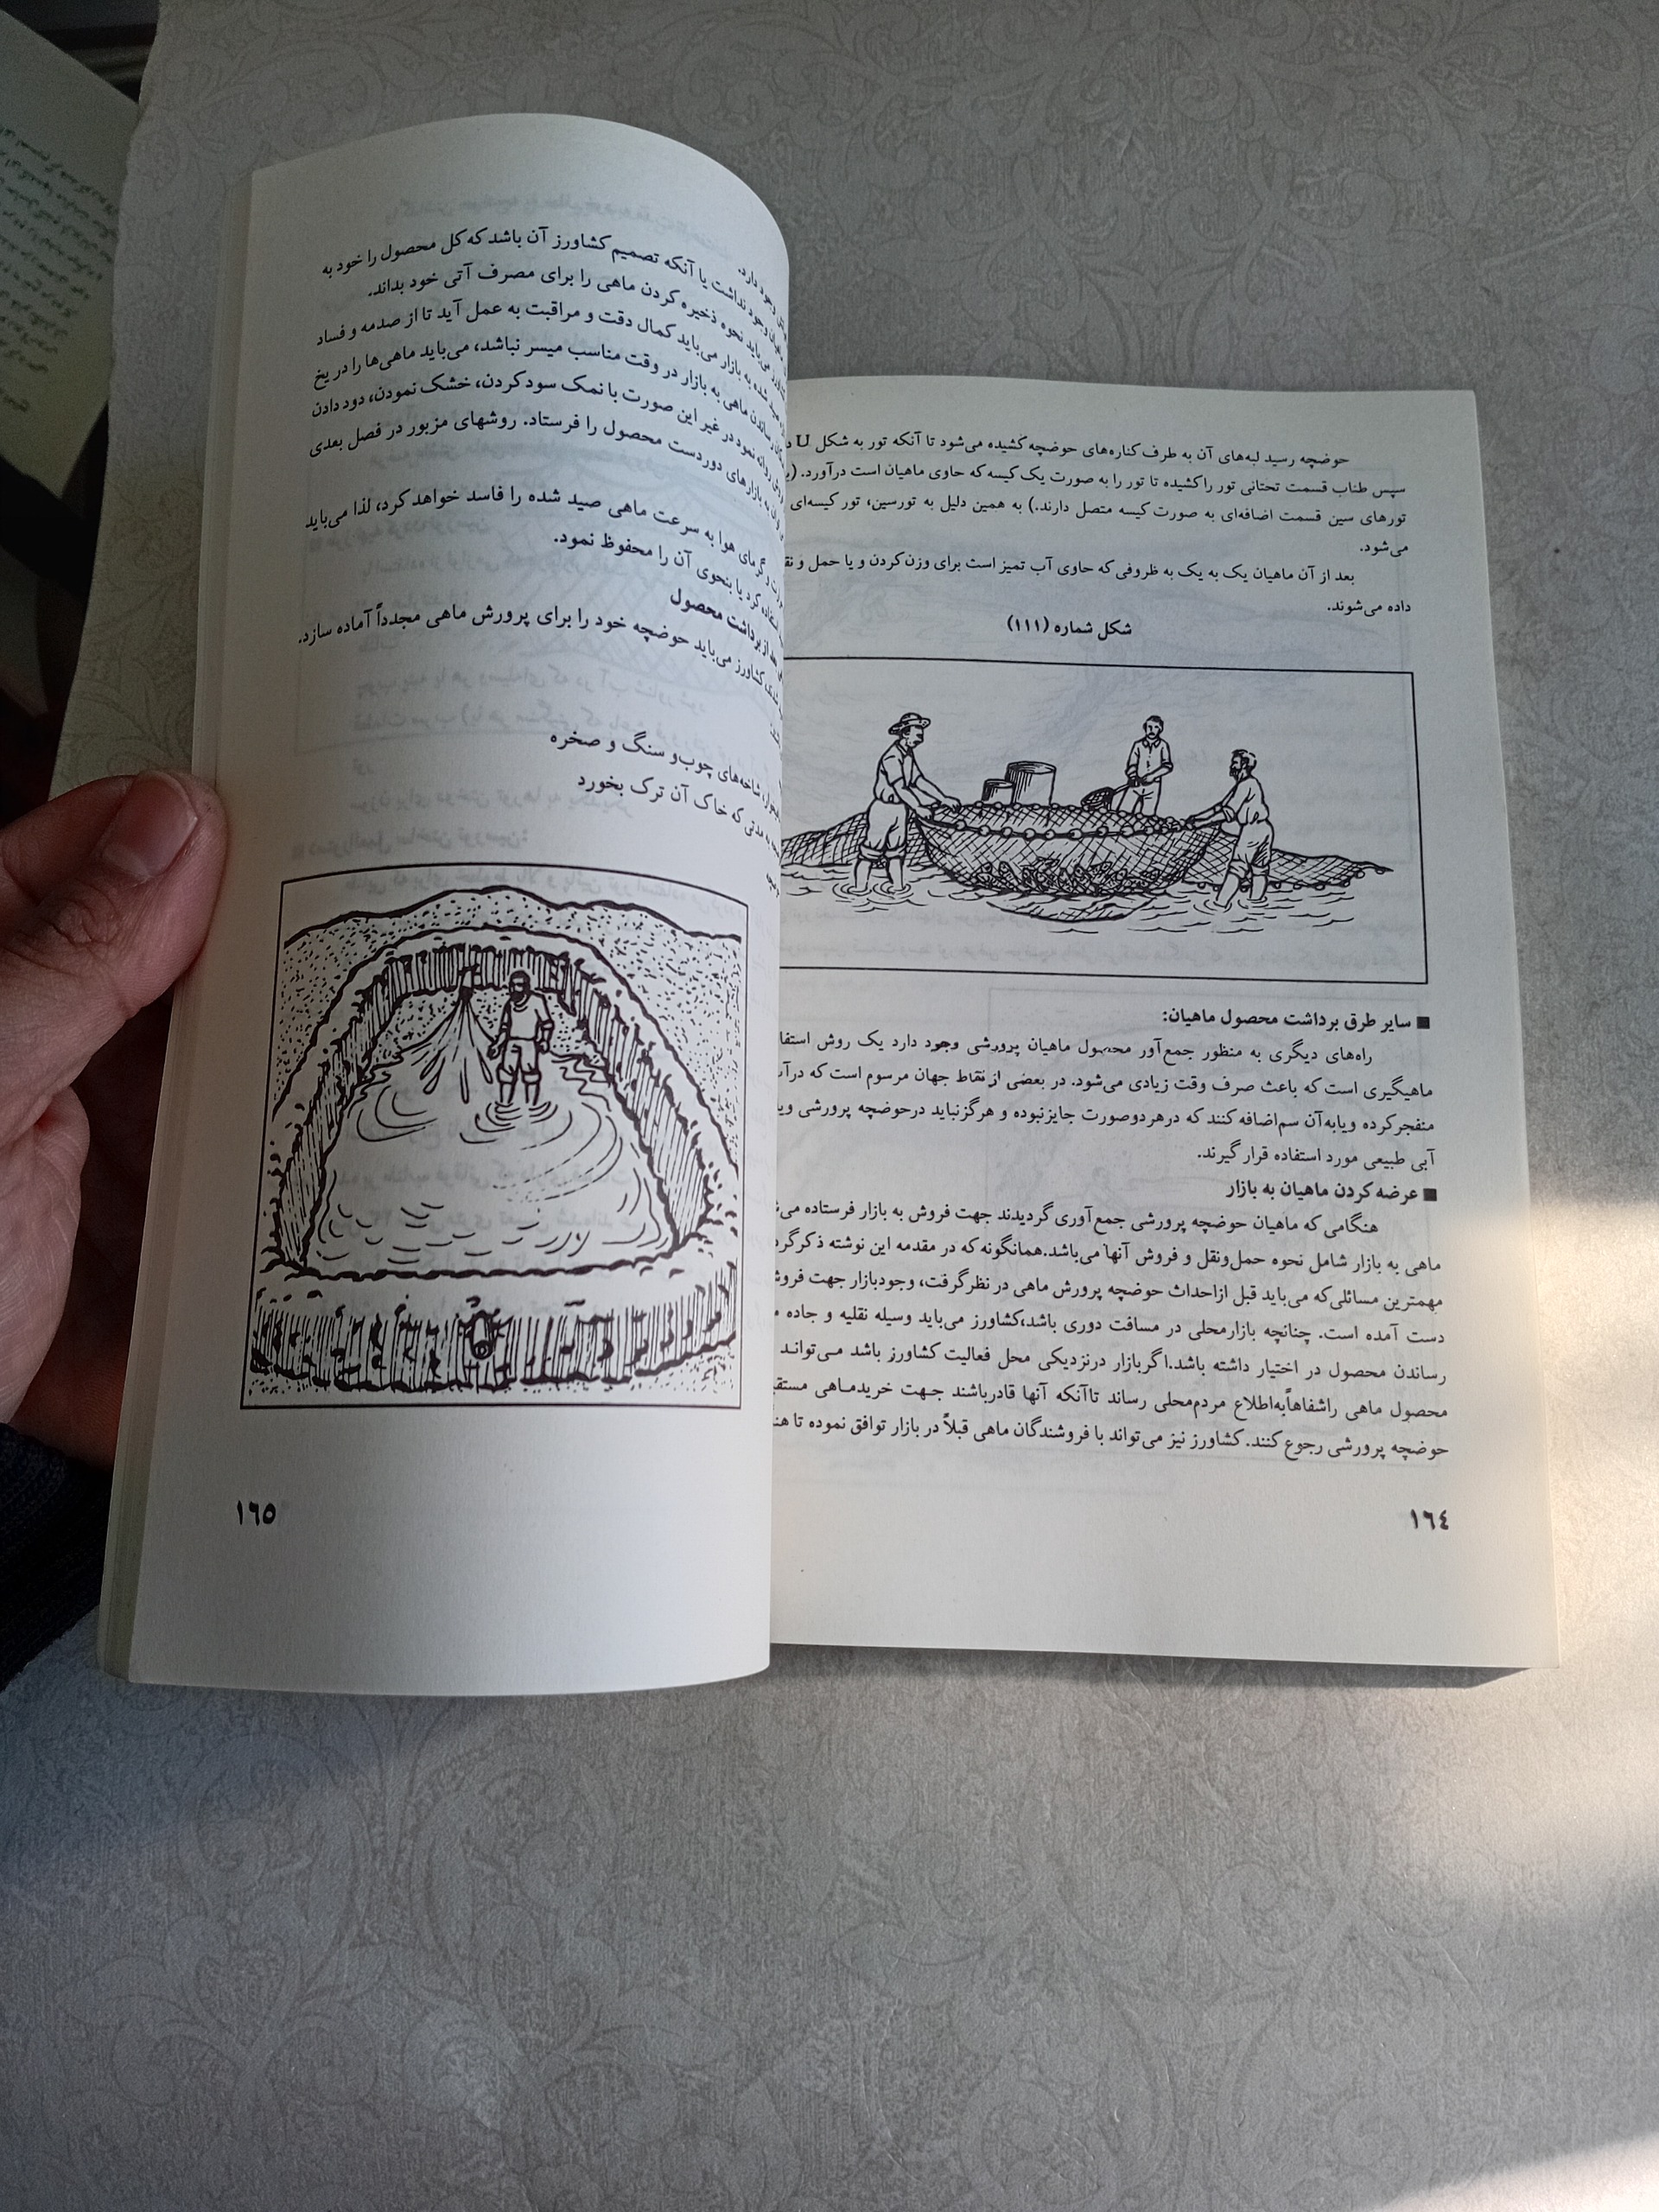 حوضچه رسید لبه‌های آن به طرف کناره‌های حوضچه کشیده می‌شود تا آنکه تور به شکل U
سپس طناب قسمت تحتانی تور را کشیده تا تور را به صورت یک کیسه که حاوی ماهیان است درآورد.
تورهای سین قسمت اضافه‌ای به صورت کیسه متصل دارند.) به همین دلیل به تورسین، تور کیسه‌ای
می‌شود.
بعد از آن ماهیان یک به یک به ظروفی که حاوی آب تمیز است برای وزن کردن و یا حمل و
داده می‌شوند.
شکل شماره (۱۱۱)
■ سایر طرق برداشت محصول ماهیان:
راه‌های دیگری به منظور جمع‌آور محصول ماهیان پرورشی وجود دارد یک روش
ماهیگیری است که باعث صرف وقت زیادی می‌شود. در بعضی از نقاط جهان مرسوم است که
منفجرکرده ویابه‌آن سم‌اضافه‌کنند که درهردوصورت جایزنبوده و هرگزنباید درحوضچه پرورشی
آبی طبیعی مورد استفاده قرار گیرند.
■ عرضه کردن ماهیان به بازار
هنگامی که ماهیان حوضچه پرورشی جمع‌آوری گردیدند جهت فروش به بازار فرستاده
ماهی به بازار شامل نحوه حمل‌ونقل و فروش آنها می‌باشد.همانگونه که در مقدمه این نوشته
مهمترین مسائلی‌که می‌باید قبل ازاحداث حوضچه پرورش ماهی در نظرگرفت، وجودبازار جهت
دست آمده است. چنانچه بازارمحلی در مسافت دوری باشد،کشاورز می‌باید وسیله نقلیه و جاده
رساندن محصول در اختیار داشته باشد.اگربازار درنزدیکی محل فعالیت کشاورز باشد می‌توانـد
محصول ماهی راشفاهاًبه‌اطلاع مردم‌محلی رساند تاآنکه آنها قادرباشند جهت خریدماهی
حوضچه پرورشی رجوع کنند. کشاورز نیز می‌تواند با فروشندگان ماهی قبلاً در بازار توافق نموده تا
١٦٤
وجود دارد.
وجود نداشت یا آنکه تصمیم کشاورز آن باشد که کل محصول را خود به
می‌باید نحوه ذخیره کردن ماهی را برای مصرف آتی خود بداند.
شده به بازار می‌باید کمال دقت و مراقبت به عمل آید تا از صدمه و فساد
رساندن ماهی به بازار در وقت مناسب میسر نباشد، می‌باید ماهی‌ها را در یخ
نمود در غیر این صورت با نمک سود کردن، خشک نمودن، دود دادن
به بازارهای دوردست محصول را فرستاد. روشهای مزبور در فصل بعدی
و گرمای هوا به سرعت ماهی صید شده را فاسد خواهد کرد، لذا می‌باید
کرد یا بنحوی آن را محفوظ نمود.
از برداشت محصول
کشاورز می‌باید حوضچه خود را برای پرورش ماهی مجدداً آماده سازد.
شاخه‌های چوب و سنگ و صخره
مدتی که خاک آن ترک بخورد
١٦٥